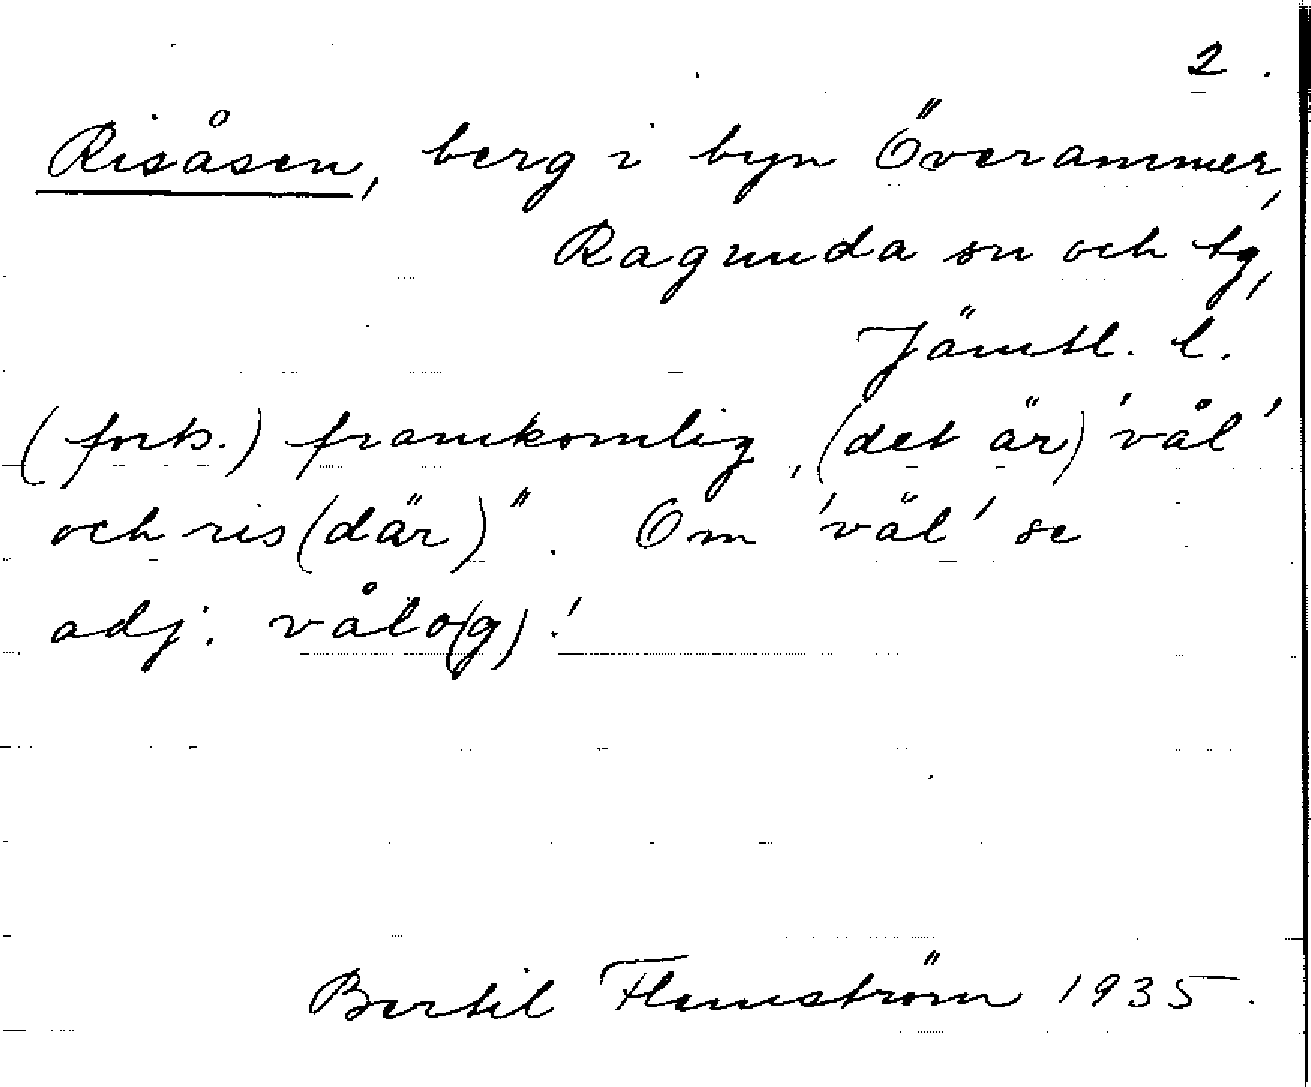 2.
Risåsen, berg i byn Överammer,
Ragunda sn och tg,
Jämtl. l.
(forts.) framkomlig, (det är) 'vål'
och ris (där)". Om 'väl' se
adj. vålo(g)!
Bertil Flemström 1935.